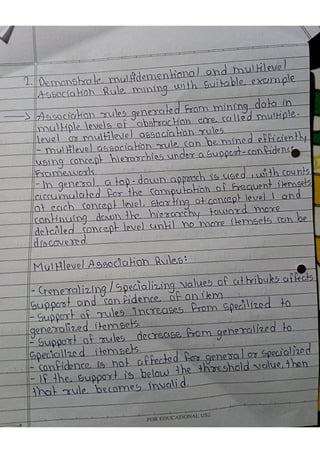 2. Demonstrate multidementional and multilevel
Association Rule mining with suitable example
→ Association rules generated from mining data in
multiple levels of abstraction are called multiple-
level or multilevel association rules
- multilevel association rule can be mined efficiently
using concept hierarchies under a support-confidence
Framework
- In general, a top-down approach is used, with counts
accumulated for the computation of frequent itemsets
at each concept level, starting at concept level 1 and
continuing down the hierarchy toward more
detailed concept level until no more itemsets can be
discovered
Multilevel Association Rules:
- Generalizing / specializing values of attributes affects
support and confidence of an item
- support of rules increases from specilized to
generalized itemsets
- support of rules decrease from generalized to
specialized itemsets
- confidence is not affected for general or specialized
- If the support is below the threshold value, then
that rule becomes invalid
FOR EDUCATIONAL USE